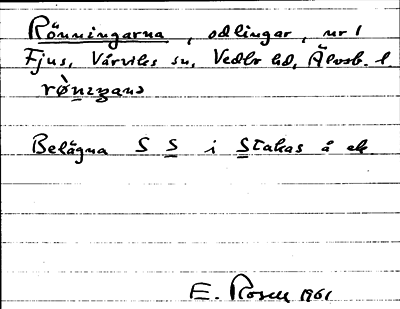 Rönningarna, odlingar, nr 1
Fjus, Vårviks sn, Vedbo hd, Älvsb. l.
rø̀nıŋana
Belägna S S i Stakas å ek.
E. Rosell 1961